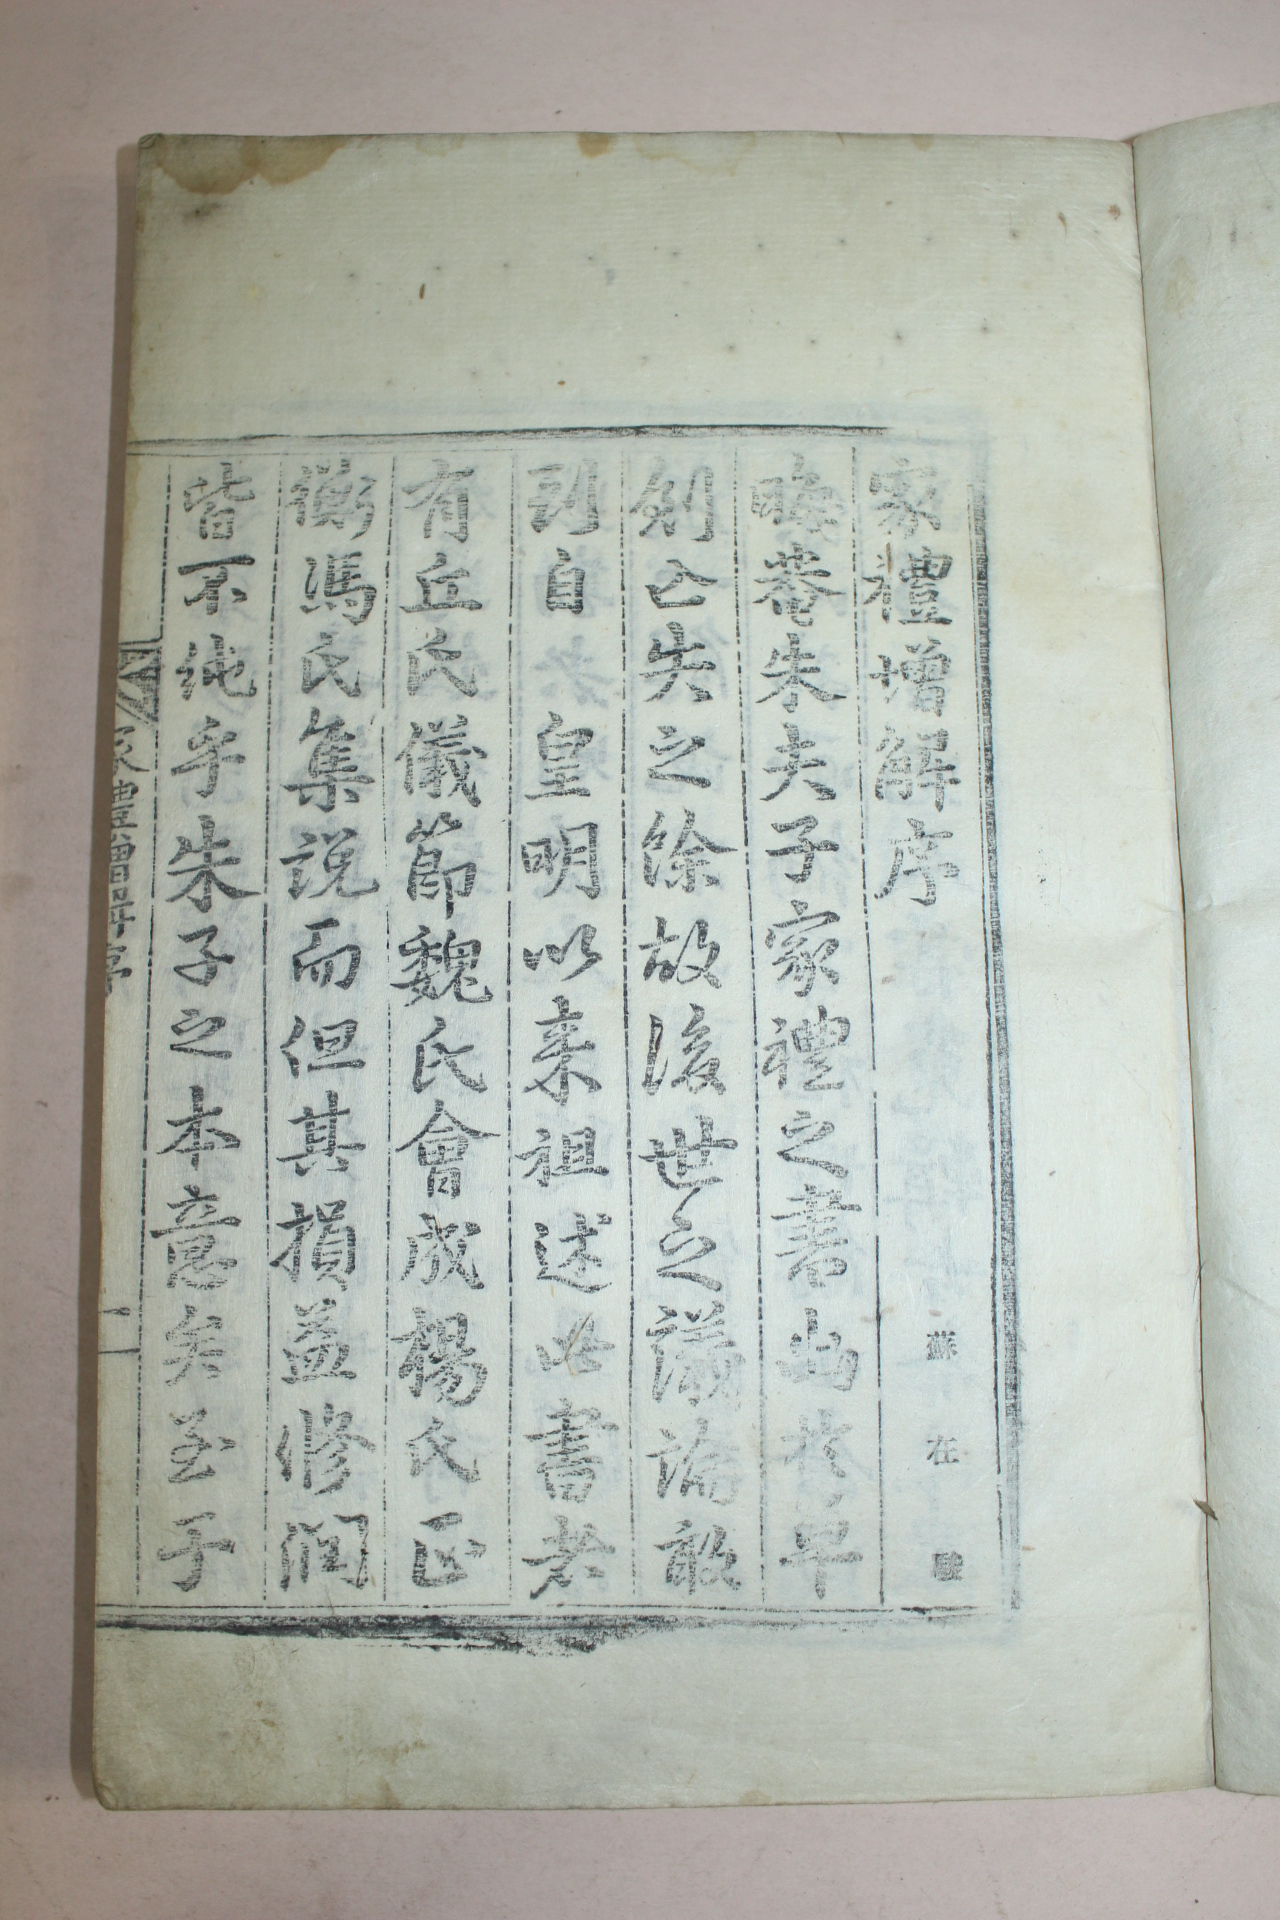 家禮增解序
晦菴朱夫子家禮之書出於草
創亡失之餘故後世之議論敢
到自 皇明以來祖述此書者
有丘氏儀節魏氏會成楊氏正
衡馮氏集說而但其損益修潤
皆不純乎朱子之本意矣至于
家禮增解序
一
蘇在